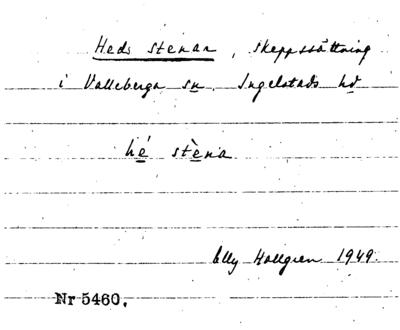 Heds stenar, skeppssättning
i Valleberga sn. Ingelstads hd
hé stèna
Elly Hallgren 1949.
Nr 5460.